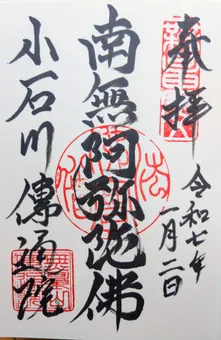 奉拝
令和七年
一月二日
南無阿弥陀佛
小石川 傳通院